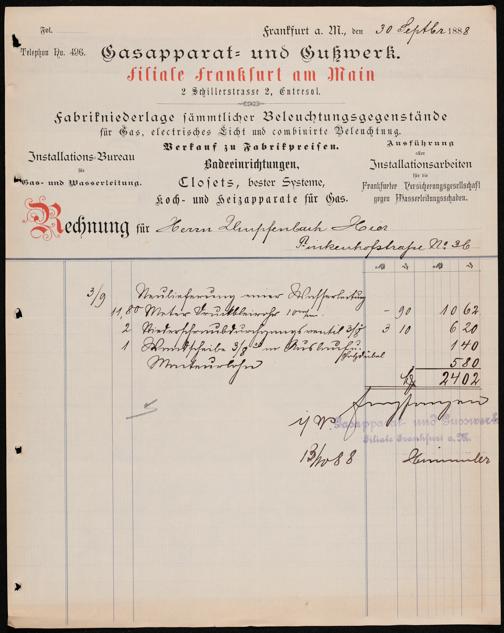 Fol.
Frankfurt a. M., den 30 Septbr 1888
Telephon No. 496.
Gasapparat- und Gußwerk.
Filiale Frankfurt am Main
2 Schillerstrasse 2, Entresol.
Fabrikniederlage sämmtlicher Beleuchtungsgegenstände
für Gas, electrisches Licht und combinirte Beleuchtung.
Verkauf zu Fabrikpreisen.
Installations-Bureau
für
Gas- und Wasserleitung.
Badeeinrichtungen,
Closets, bester Systeme,
Koch- und Heizapparate für Gas.
Ausführung
aller
Installationsarbeiten
für die
Frankfurter Versicherungsgesellschaft
gegen Wasserleitungsschaden.
Rechnung für Herrn Umpfenbach Hier
Finkenhofstraße No 36
3/9 Neulieferung einer Wasserleitung
11,80 Meter Druckbleirohr 10 m/m - 90 10 62
2 Niederschraubdurchgangsventil 3/8 3 10 6 20
1 Wandscheibe 3/8" m Auslauf u. Holzdübel 1 40
Monteurlohn 5 80
24 02
empfangen
i/V
Gasapparat- und Gusswerk
Filiale Frankfurt a. M.
13/10 88 Himmler